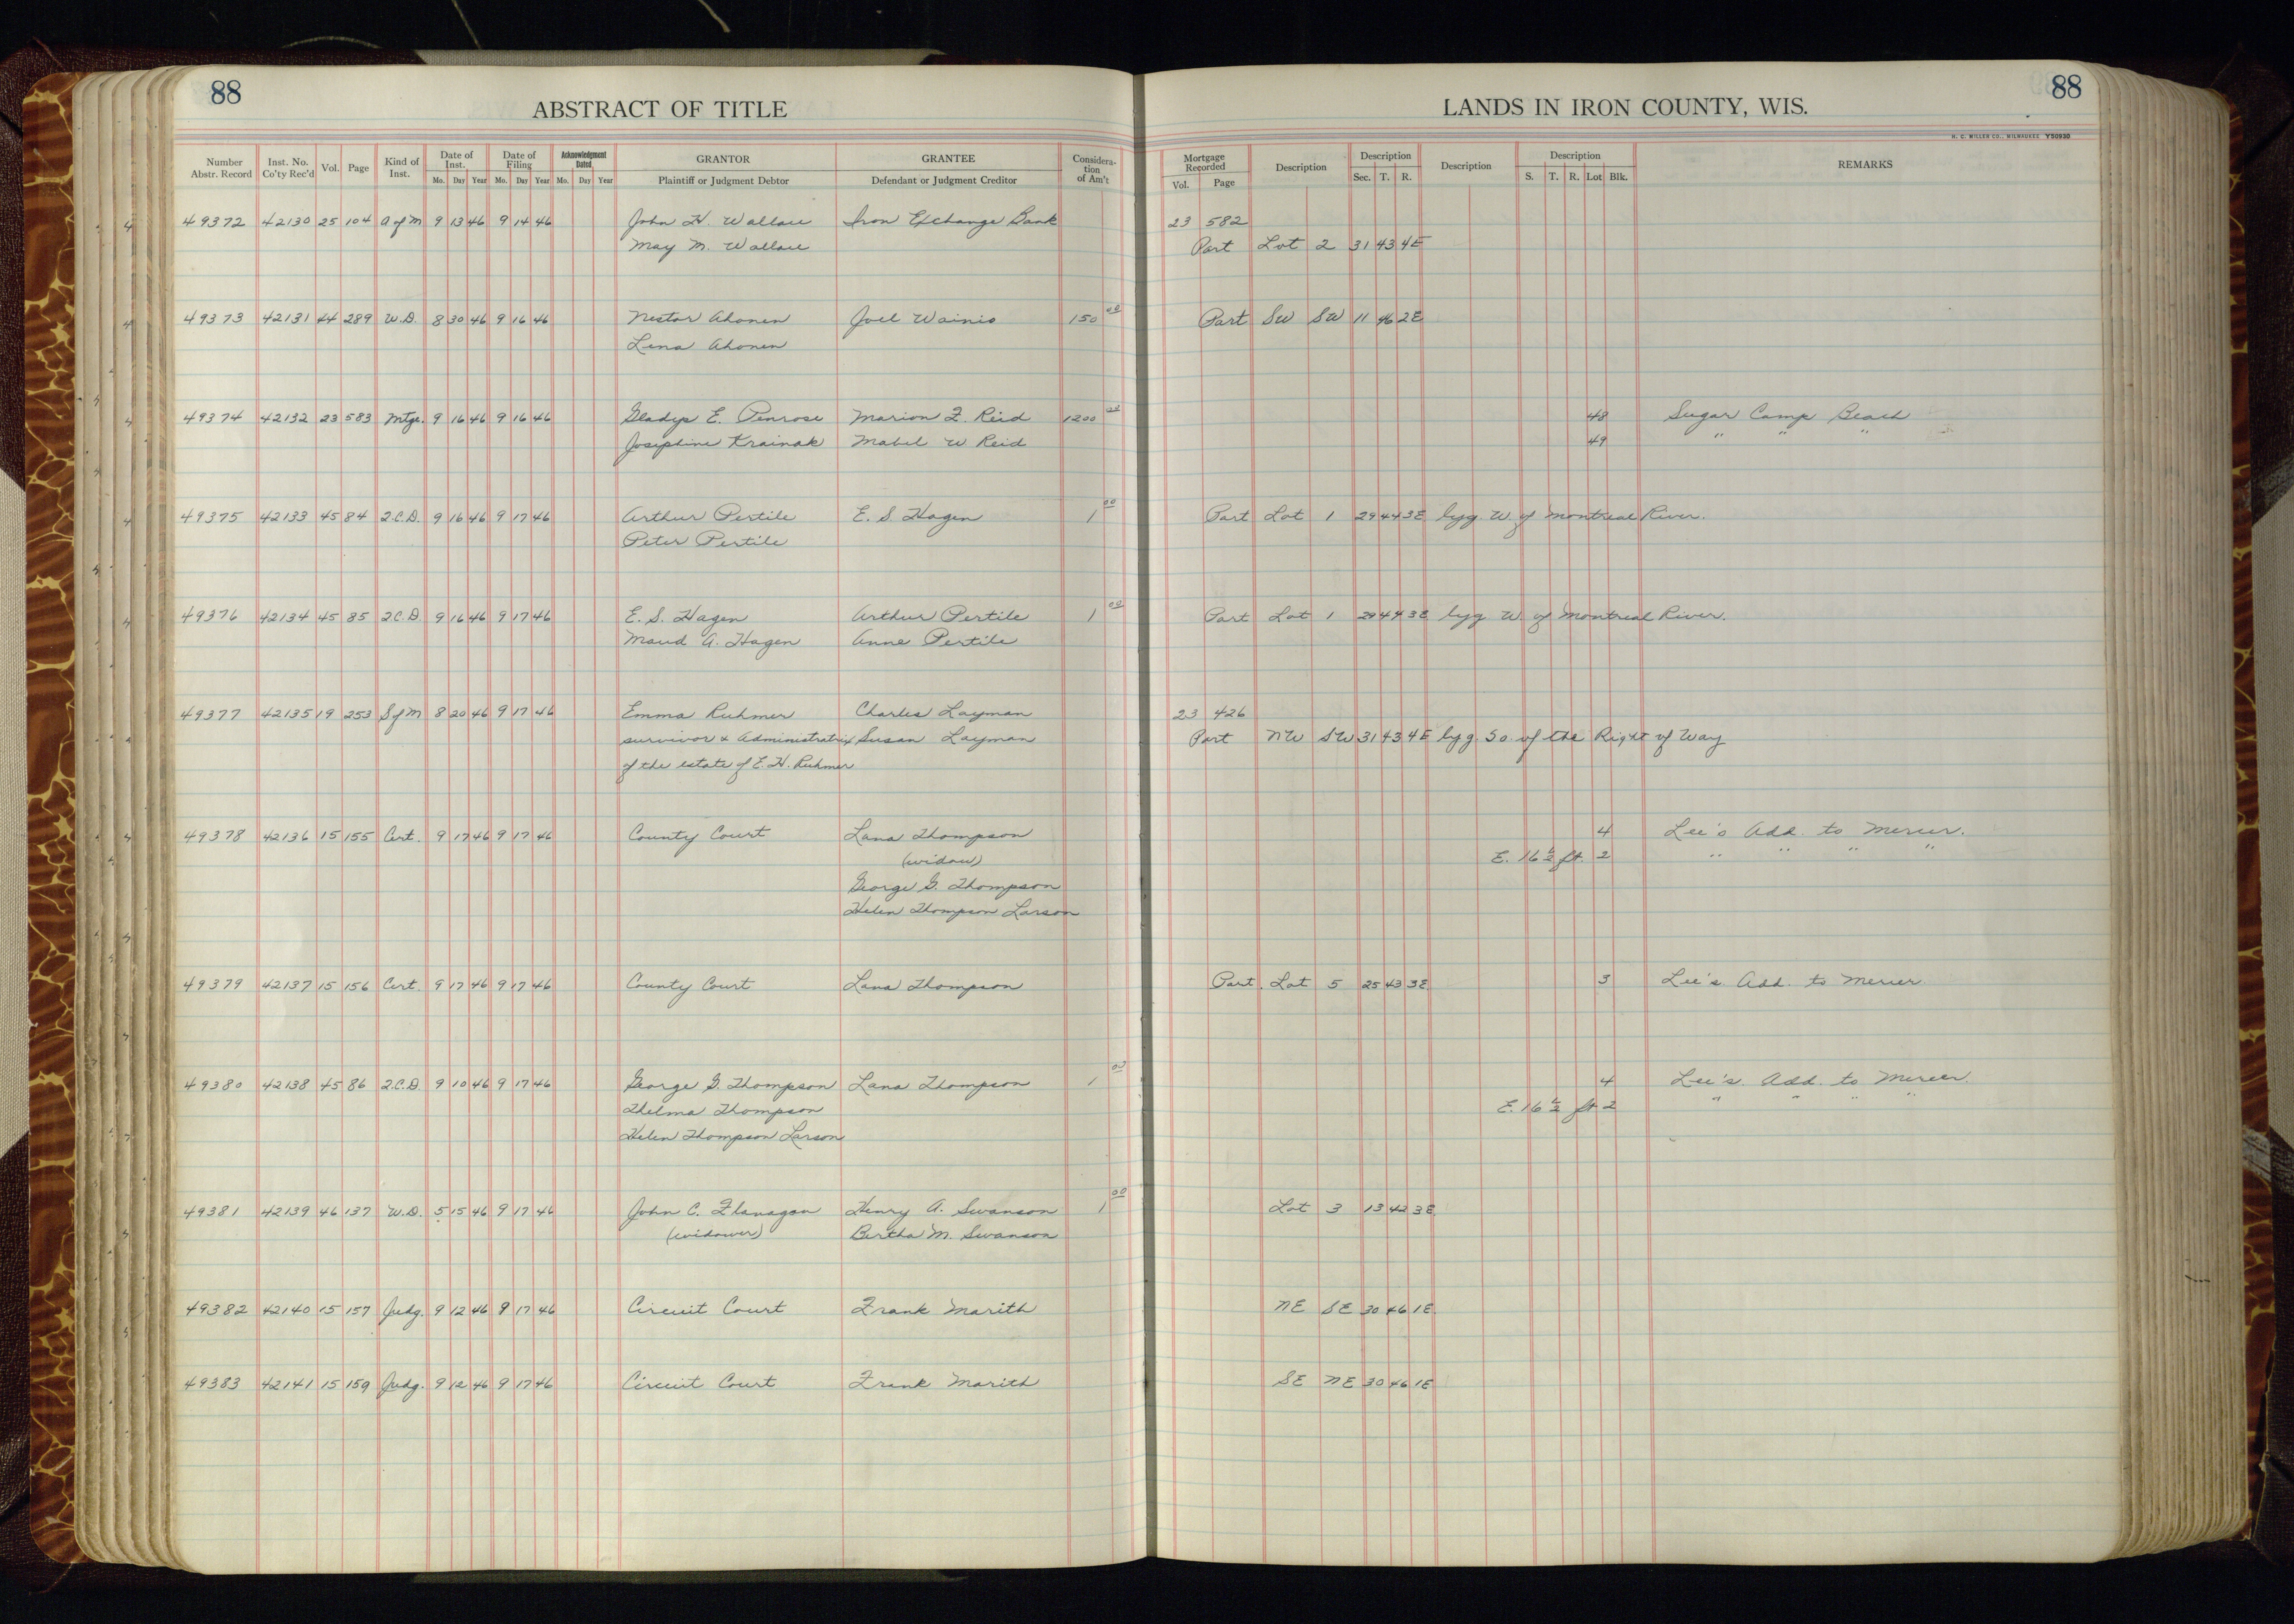 88
ABSTRACT OF TITLE
Number Abstr. Record | Inst. No. Co'ty Rec'd | Vol. | Page | Kind of Inst. | Date of Inst. Mo. Day Year | Date of Filing Mo. Day Year | Acknowledgment Dated Mo. Day Year | GRANTOR Plaintiff or Judgment Debtor | GRANTEE Defendant or Judgment Creditor | Considera-tion of Am't
49372 42130 25 104 A of M 9 13 46 9 14 46 John H. Wallace Iron Exchange Bank
May M. Wallace
49373 42131 44 289 W.D. 8 30 46 9 16 46 Nestor Ahonen Joel Wainio 150 00
Lena Ahonen
49374 42132 23 583 Mtge. 9 16 46 9 16 46 Gladys E. Penrose Marion F. Reid 1200 00
Josephine Krainak Mabel W Reid
49375 42133 45 84 Q.C.D. 9 16 46 9 17 46 Arthur Pertile E. S. Hagen 1 00
Peter Pertile
49376 42134 45 85 Q.C.D. 9 16 46 9 17 46 E. S. Hagen Arthur Pertile 1 00
Maud A. Hagen Anne Pertile
49377 42135 19 253 S of M 8 20 46 9 17 46 Emma Ruhmer Charles Layman
survivor & Administratrix Susan Layman
of the estate of E. H. Ruhmer
49378 42136 15 155 Cert. 9 17 46 9 17 46 County Court Lana Thompson
(widow)
George G. Thompson
Helen Thompson Larson
49379 42137 15 156 Cert. 9 17 46 9 17 46 County Court Lana Thompson
49380 42138 45 86 Q.C.D. 9 10 46 9 17 46 George G. Thompson Lana Thompson 1 00
Thelma Thompson
Helen Thompson Larson
49381 42139 46 137 W.D. 5 15 46 9 17 46 John C. Flanagan Henry A. Swanson 1 00
(widower) Bertha M. Swanson
49382 42140 15 157 Judg. 9 12 46 9 17 46 Circuit Court Frank Marith
49383 42141 15 159 Judg. 9 12 46 9 17 46 Circuit Court Frank Marith
88
LANDS IN IRON COUNTY, WIS.
H. C. MILLER CO., MILWAUKEE Y50930
Mortgage Recorded Vol. Page | Description | Description Sec. T. R. | Description | Description S. T. R. Lot Blk. | REMARKS
23 582
Part Lot 2 31 43 4E
Part SW SW 11 46 2E
48 Sugar Camp Beach
49 " " "
Part Lot 1 29 44 3E lyg. W. of Montreal River.
Part Lot 1 29 44 3E lyg. W. of Montreal River.
23 426
Part NW SW 31 43 4E lyg. So. of the Right of Way
4 Lee's Add. to Mercer.
E. 16 1/2 ft. 2 " " " "
Part Lot 5 25 43 3E 3 Lee's Add. to Mercer
4 Lee's Add. to Mercer.
E. 16 1/2 ft 2 " " " "
Lot 3 13 42 3E
NE SE 30 46 1E
SE NE 30 46 1E